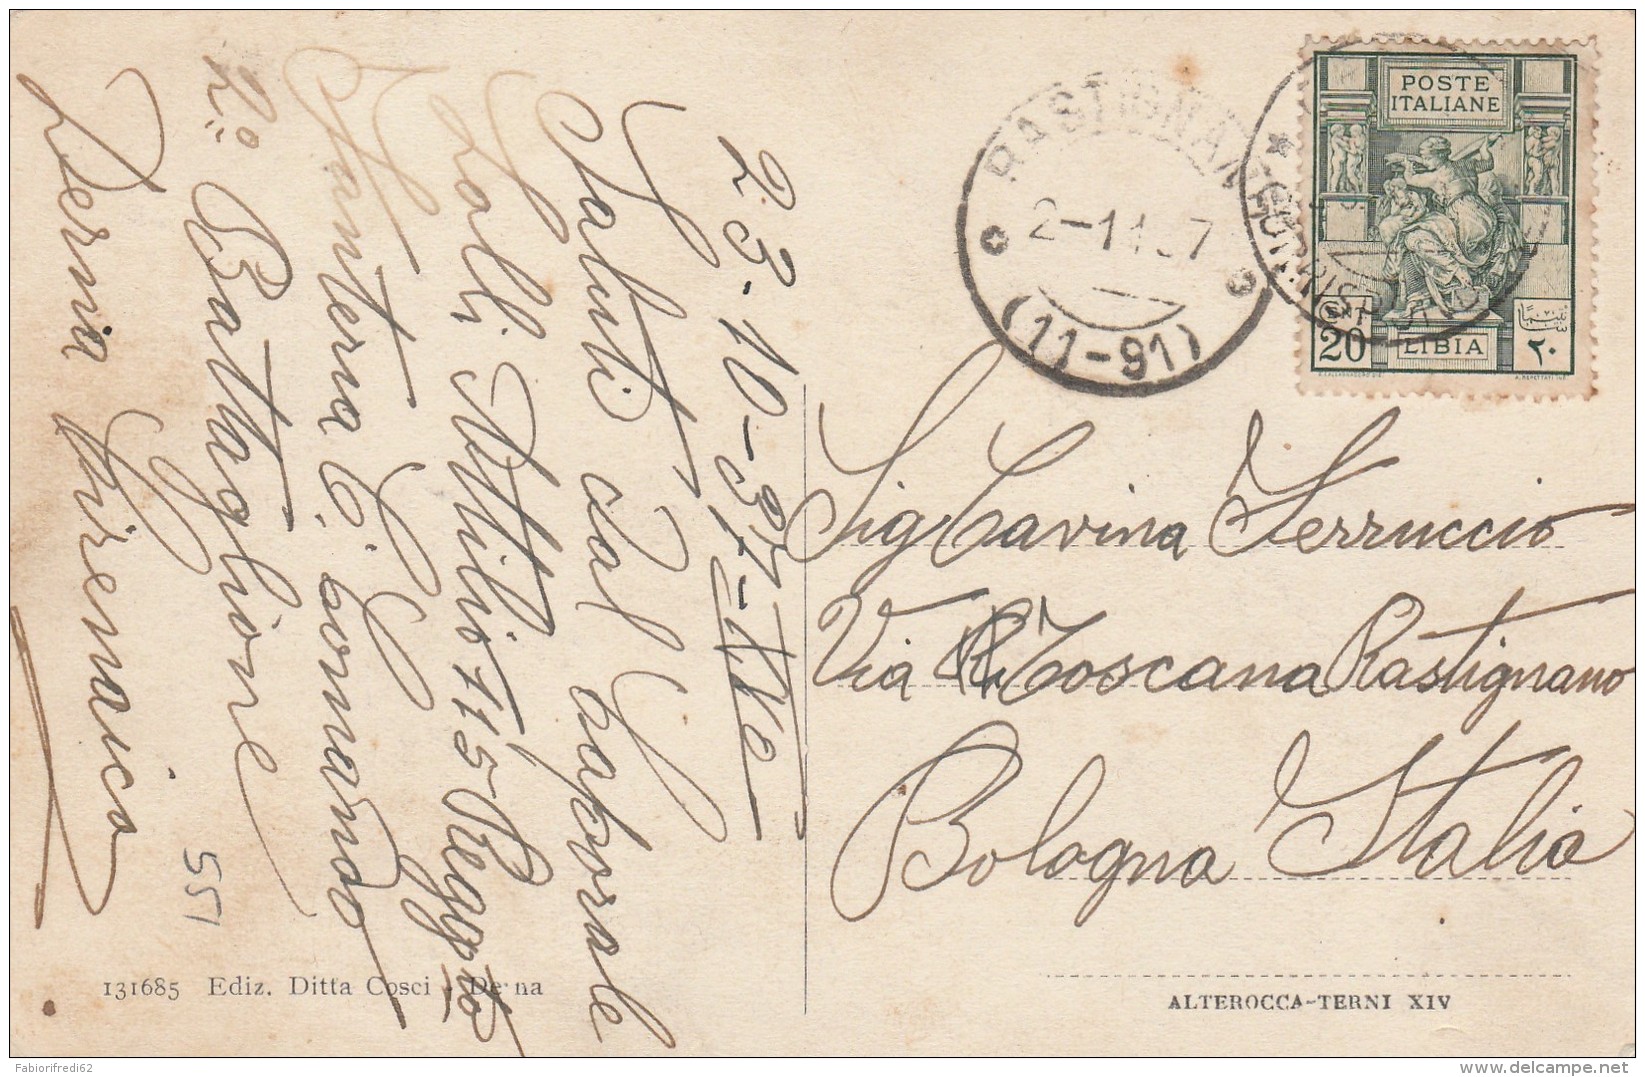 23-10-37-XVe
Saluti dal Caporale
Zoli Attilio 115 Reggto
Fanteria C. Comando
2o Battaglione
Derna Cirenaica
551
131685 Ediz. Ditta Cosci - Derna
RASTIGNANO
2-11 37
(11-91)
POSTE
ITALIANE
CENT
20
LIBIA
٢٠
Sig Cavina Ferruccio
Via Toscana Rastignano
Bologna Italia
ALTEROCCA-TERNI XIV
Fabiorifredi62
delcampe.net